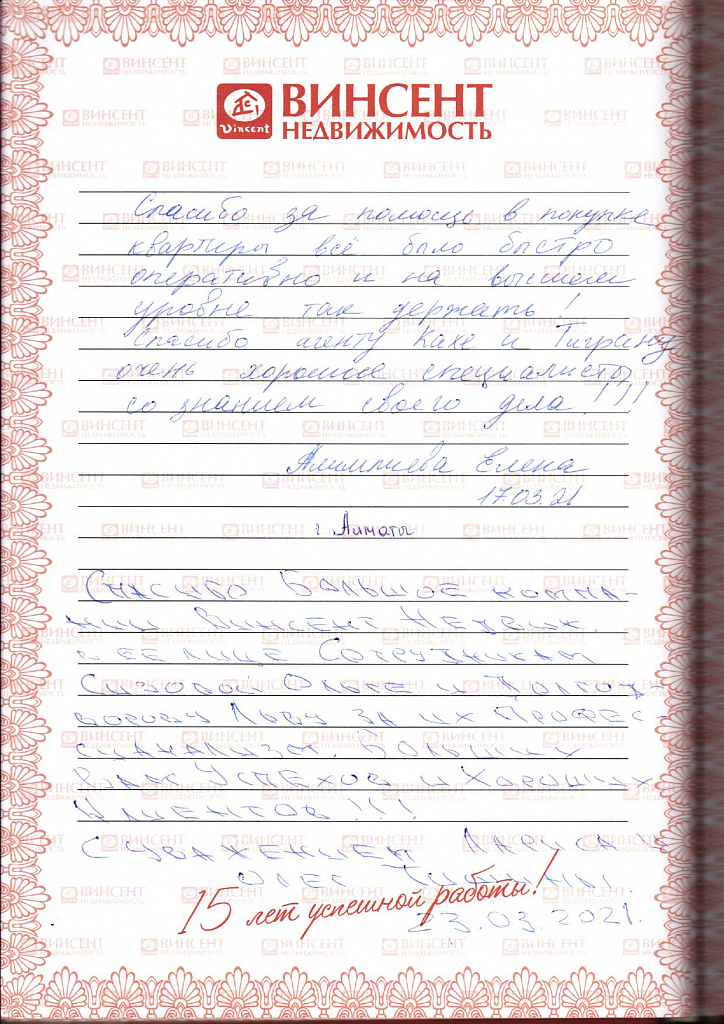 Vincent
ВИНСЕНТ
НЕДВИЖИМОСТЬ
Спасибо за помощь в покупке
квартиры всё было быстро
оперативно и на высшем
уровне так держать!
Спасибо агенту Кахе и Тиграну
очень хорошие специалисты
со знанием своего дела!!!
Алимпиева Елена
17.03.21
г. Алматы
Спасибо Большое компа-
нии Винсент Недвиж.
в ее лице Сотрудникам
Сизовой Ольге и
Льву за их Профес-
сианализм. Больших
Вам Успехов и Хороших
Клиентов!!!
С уважением Лариса и
Олег
15 лет успешной работы!
23.03.2021.